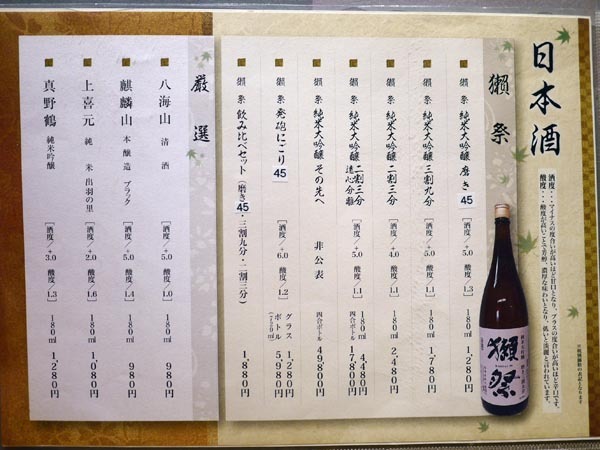 日本酒
酒度・・・マイナスの度合いが高いほど甘口となり、プラスの度合いが高いほど辛口です。
酸度・・・酸度が高いことで芳醇、濃厚な味わいとなり、低いと淡麗と言われています。
獺祭
獺祭 純米大吟醸 磨き45 [酒度/+5.0 酸度/1.1] 180ml 1,280円
獺祭 純米大吟醸 三割九分 [酒度/+5.0 酸度/1.1] 180ml 1,780円
獺祭 純米大吟醸 二割三分 [酒度/+4.0 酸度/1.1] 180ml 2,480円
獺祭 純米大吟醸 二割三分 遠心分離 [酒度/+5.0 酸度/1.1] 180ml 4,480円 四合ボトル 17,800円
獺祭 純米大吟醸 その先へ 非公表 四合ボトル 49,800円
獺祭 発砲にごり45 [酒度/+6.0 酸度/1.2] グラス 1,280円 ボトル(720ml) 5,980円
獺祭 飲み比べセット(磨き45・三割九分・二割三分) 1,880円
厳選
八海山 清酒 [酒度/+5.0 酸度/1.0] 180ml 980円
麒麟山 本醸造 ブラック [酒度/+5.0 酸度/1.4] 180ml 980円
上喜元 純米 出羽の里 [酒度/+2.0 酸度/1.6] 180ml 1,080円
真野鶴 純米吟醸 [酒度/+3.0 酸度/1.3] 180ml 1,280円
獺祭